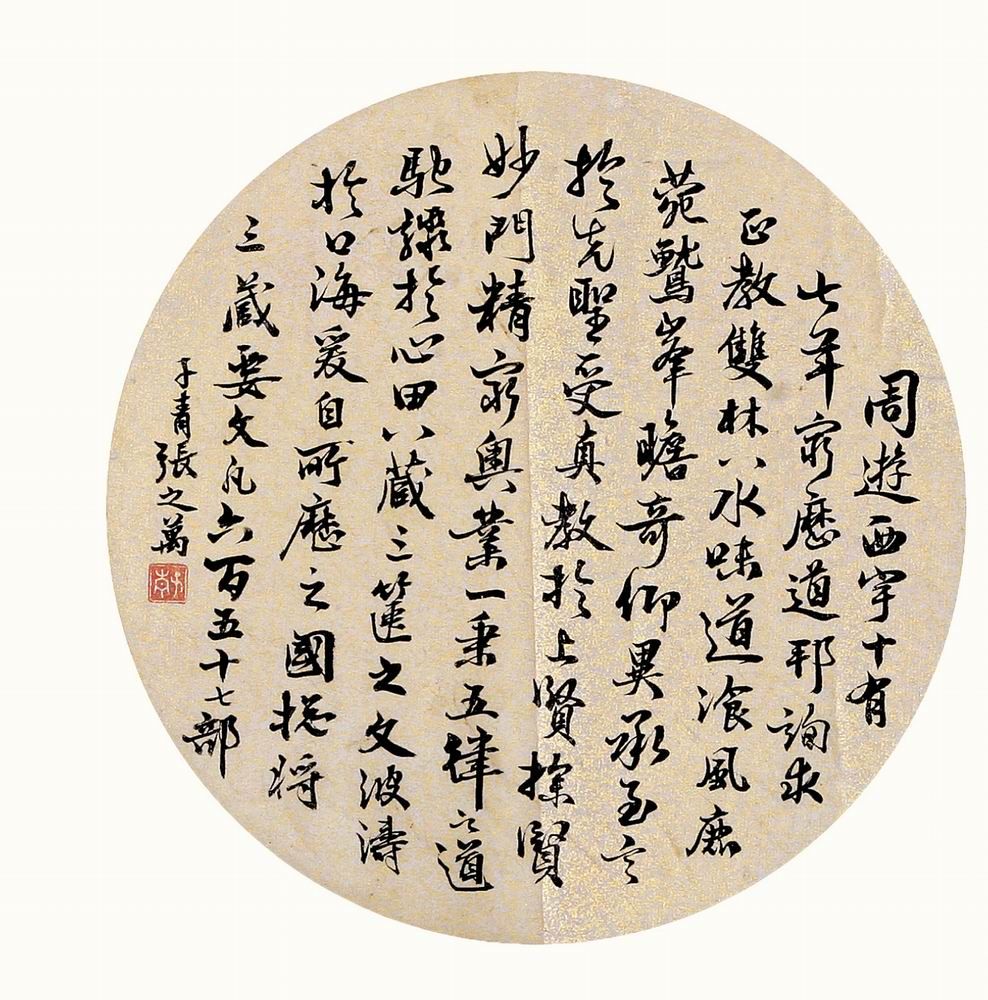 周遊西宇十有
七年窮歷道邦詢求
正教雙林八水味道飡風鹿
菀鷲峯瞻奇仰異承至言
於先聖受真教於上賢探賢
妙門精窮奧業一乘五律之道
馳驟於心田八藏三篋之文波濤
於口海爰自所歷之國揔將
三藏要文凡六百五十七部
子青張之萬